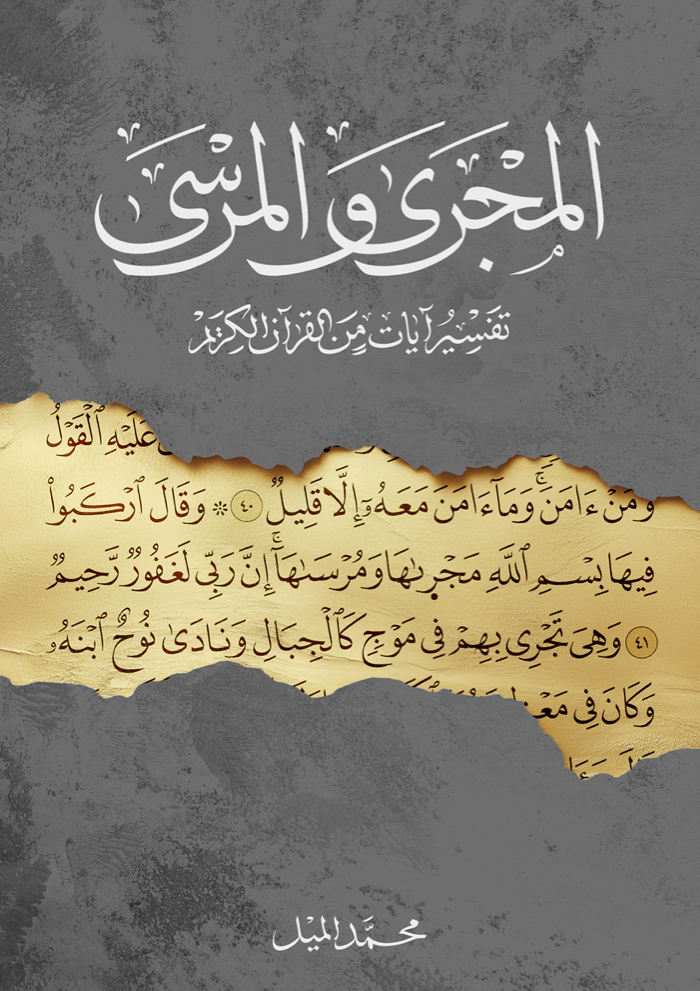 المجْرَى وَ المرْسَى
تَفْسِيْرُ آيَات مِنَ القرآن الكِرَيمْ
عَلَيْهِ ٱلْقَوْلُ
وَمَنْ ءَامَنَۚ وَمَآءَامَنَ مَعَهُۥٓ إِلَّا قَلِيلٌ ٤٠ ۞ وَقَالَ ٱرْكَبُوا۟
فِيهَا بِسْمِ ٱللَّهِ مَجْر۪ىٰهَا وَمُرْسَىٰهَآۚ إِنَّ رَبِّى لَغَفُورٌ رَّحِيمٌ
٤١ وَهِىَ تَجْرِى بِهِمْ فِى مَوْجٍ كَٱلْجِبَالِ وَنَادَىٰ نُوحٌ ٱبْنَهُۥ
وَكَانَ فِى
محمَّد الميْل